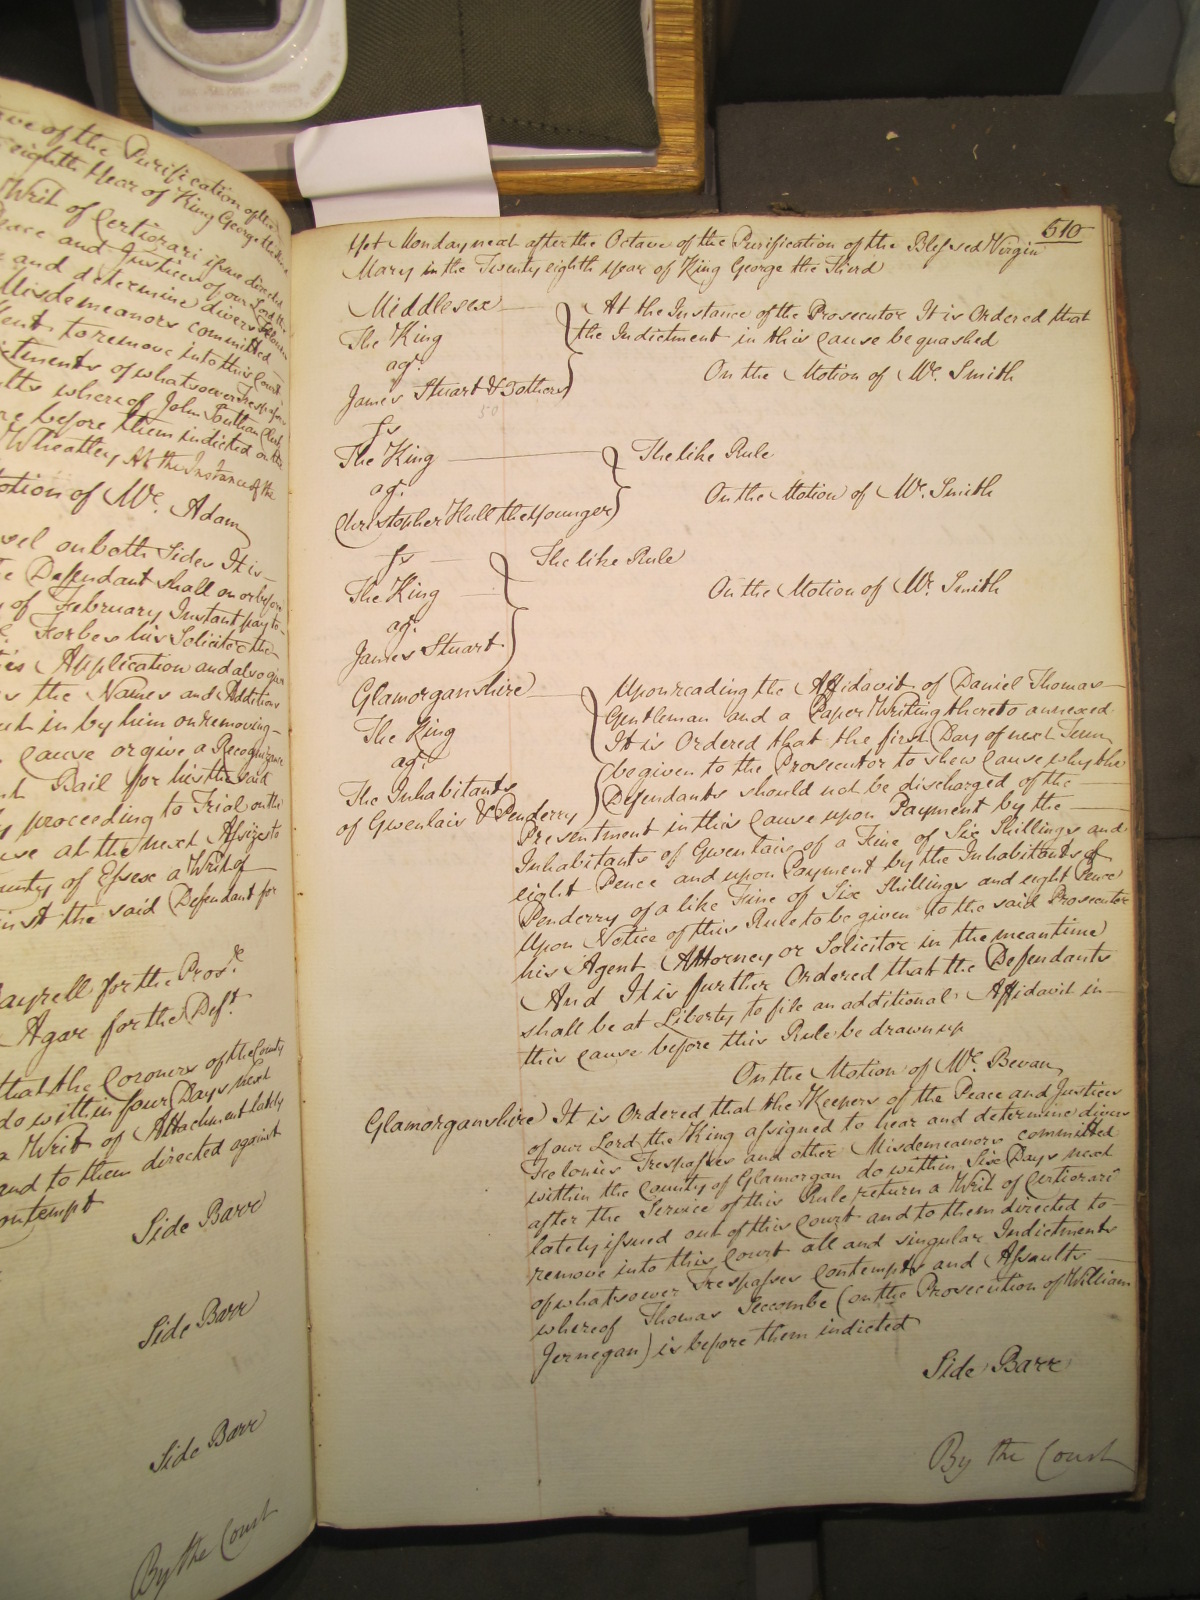 of the Purification of the
eighth Year of King George the Third
Writ of Certiorari issue directed
Peace and Justices of our Lord the
and determine divers Felonies
Misdemeanors committed
to remove into this Court
Indictments of whatsoever Trespasses
whereof John
before them indicted on the
Wheatley At the Instance of the
Motion of Mr. Adam
on both Sides It is
Defendant shall on or before
of February Instant pay to
Forbes his Solicitor the
Application and also give
the Names and Additions
in by him on removing
Cause or give a Recognizance
Bail for his the said
proceeding to Trial on the
at the next Assizes to
County of Essex a Writ of
against the said Defendant for
Sayrell for the Pros.
Agar for the Deft.
that the Coroners of the County
do within four Days next
a Writ of Attachment lately
and to them directed against
Contempt
Side Barr
Side Barr
Side Barr
By the Court
510
Yet Monday next after the Octave of the Purification of the Blessed Virgin
Mary in the Twenty eighth Year of King George the Third
Middlesex At the Instance of the Prosecutor It is Ordered that
The King the Indictment in this Cause be quashed
agt. On the Motion of Mr. Smith
James Stuart & 5 others
50
Ss
The King The like Rule
agt. On the Motion of Mr. Smith
Christopher Hull the Younger
Ss The like Rule
The King On the Motion of Mr. Smith
agt.
James Stuart
Glamorganshire Upon reading the Affidavit of Daniel Thomas
The King Gentleman and a Paper Writing thereto annexed
agt. It is Ordered that the first Day of next Term
The Inhabitants be given to the Prosecutor to shew Cause why the
of Gwenlais & Penderry Defendants should not be discharged of the
Presentment in this Cause upon Payment by the
Inhabitants of Gwenlais of a Fine of Six Shillings and
eight Pence and upon Payment by the Inhabitants of
Penderry of a like Fine of Six Shillings and eight Pence
Upon Notice of this Rule to be given to the said Prosecutor
his Agent Attorney or Solicitor in the meantime
And It is further Ordered that the Defendants
shall be at Liberty to file an additional Affidavit in
this Cause before this Rule be drawn up
On the Motion of Mr. Bevan
Glamorganshire) It is Ordered that the Keepers of the Peace and Justices
of our Lord the King assigned to hear and determine divers
Felonies Trespasses and other Misdemeanors committed
within the County of Glamorgan do within Six Days next
after the Service of this Rule return a Writ of Certiorari
lately issued out of this Court and to them directed to
remove into this Court all and singular Indictments
of whatsoever Trespasses Contempts and Assaults
whereof Thomas Seccombe (on the Prosecution of William
Jernegan) is before them indicted
Side Barr
By the Court